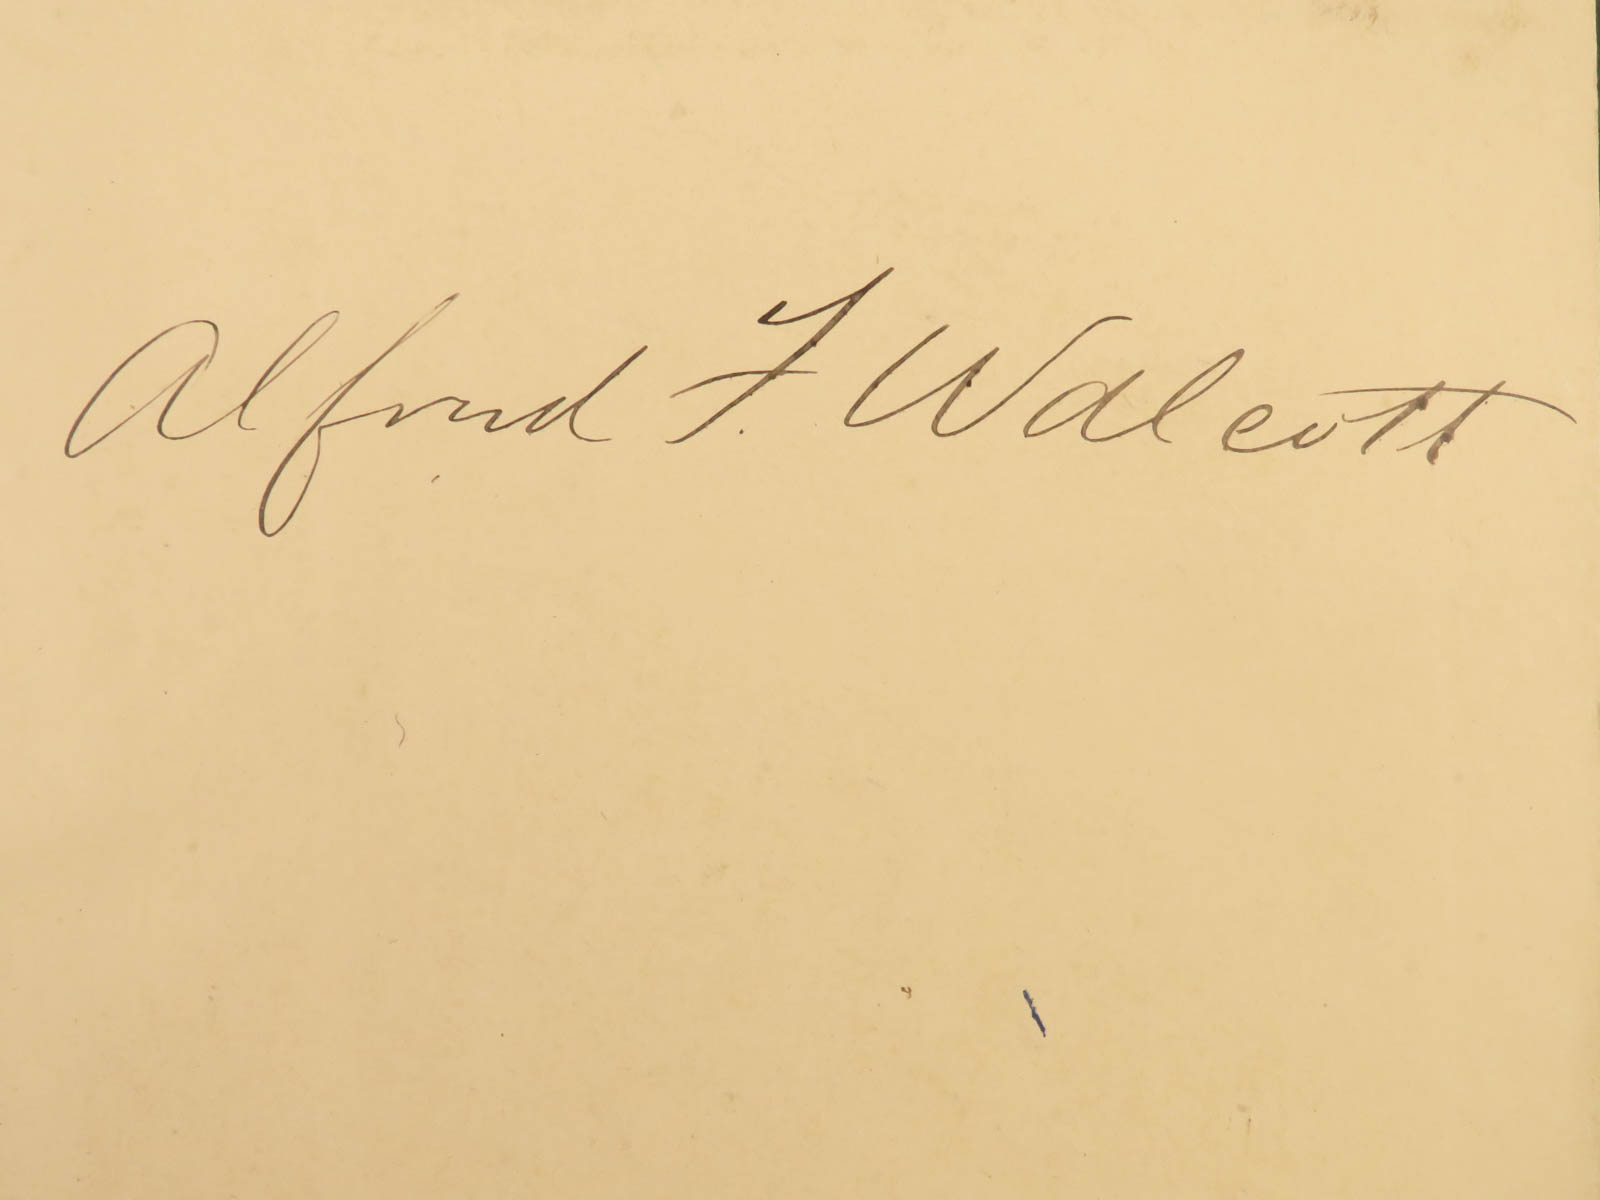 Alfred F. Walcott